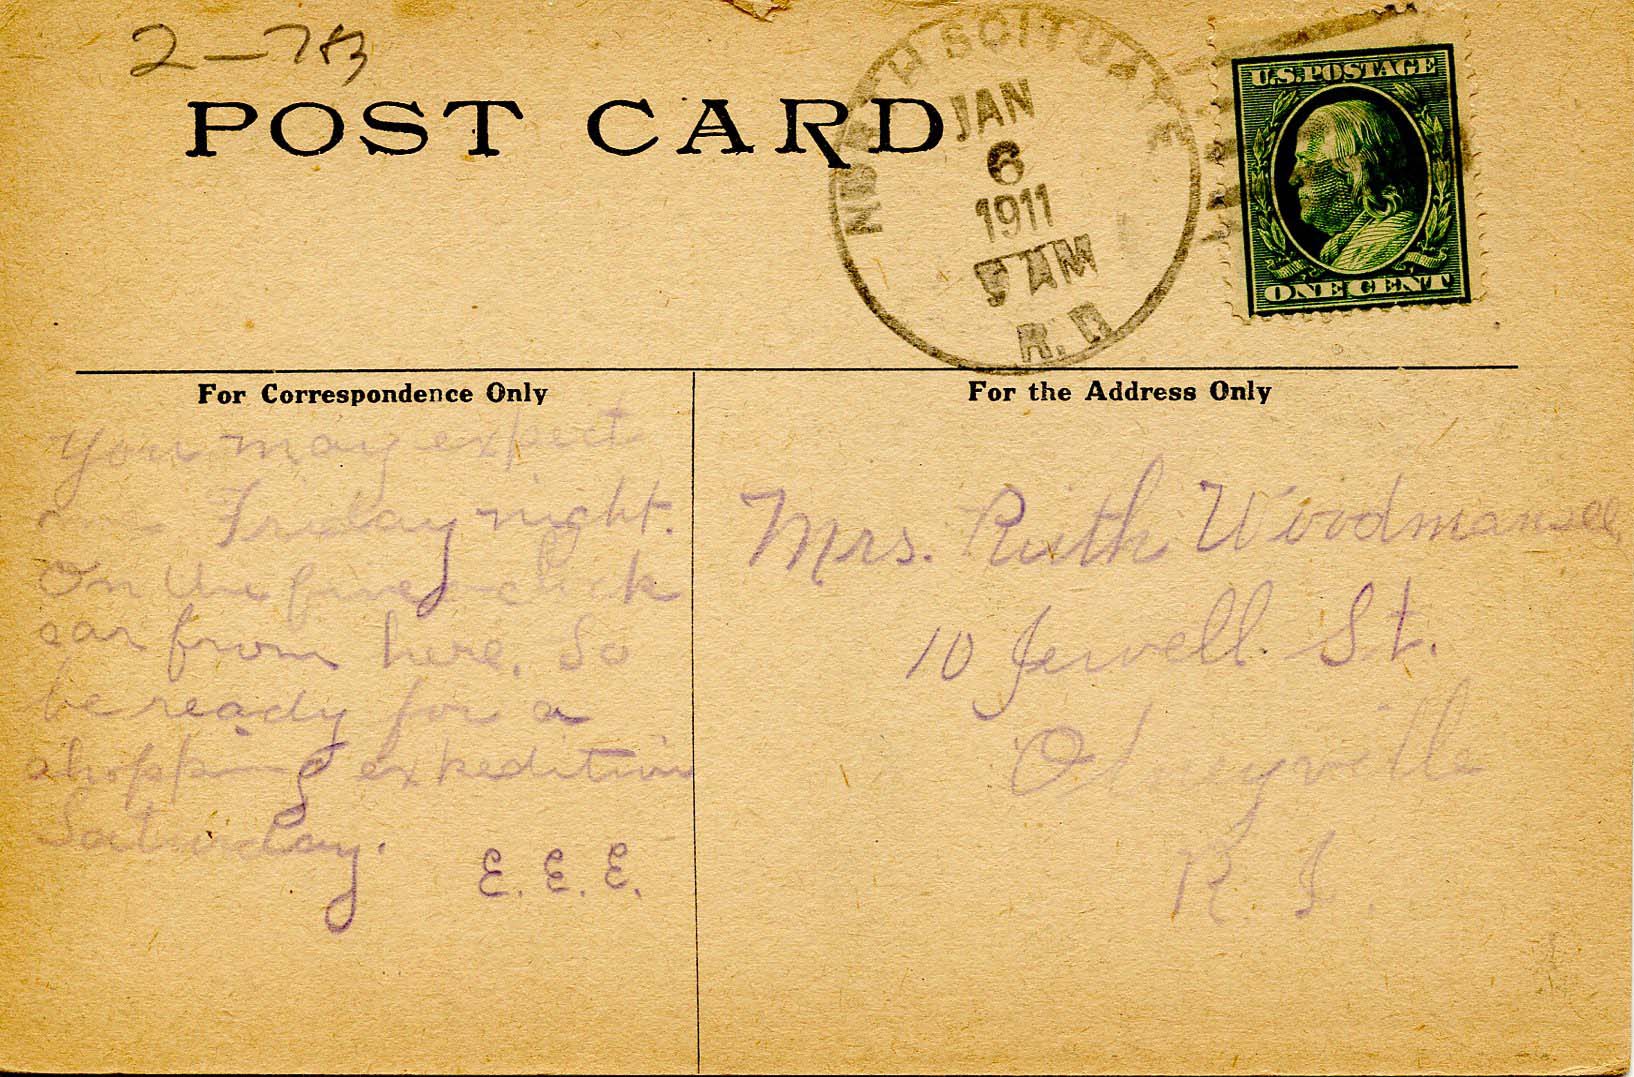 2-78
POST CARD
NORTH SCITUATE
JAN
6
1911
AM
R.I.
U.S. POSTAGE
ONE CENT
For Correspondence Only
For the Address Only
You may expect
me Friday night.
On the five o-clock
car from here. So
be ready for a
shopping expedition
Saturday.
E. E. E.
Mrs. Ruth Woodmansee
10 Jewell St.
Olneyville
R. I.